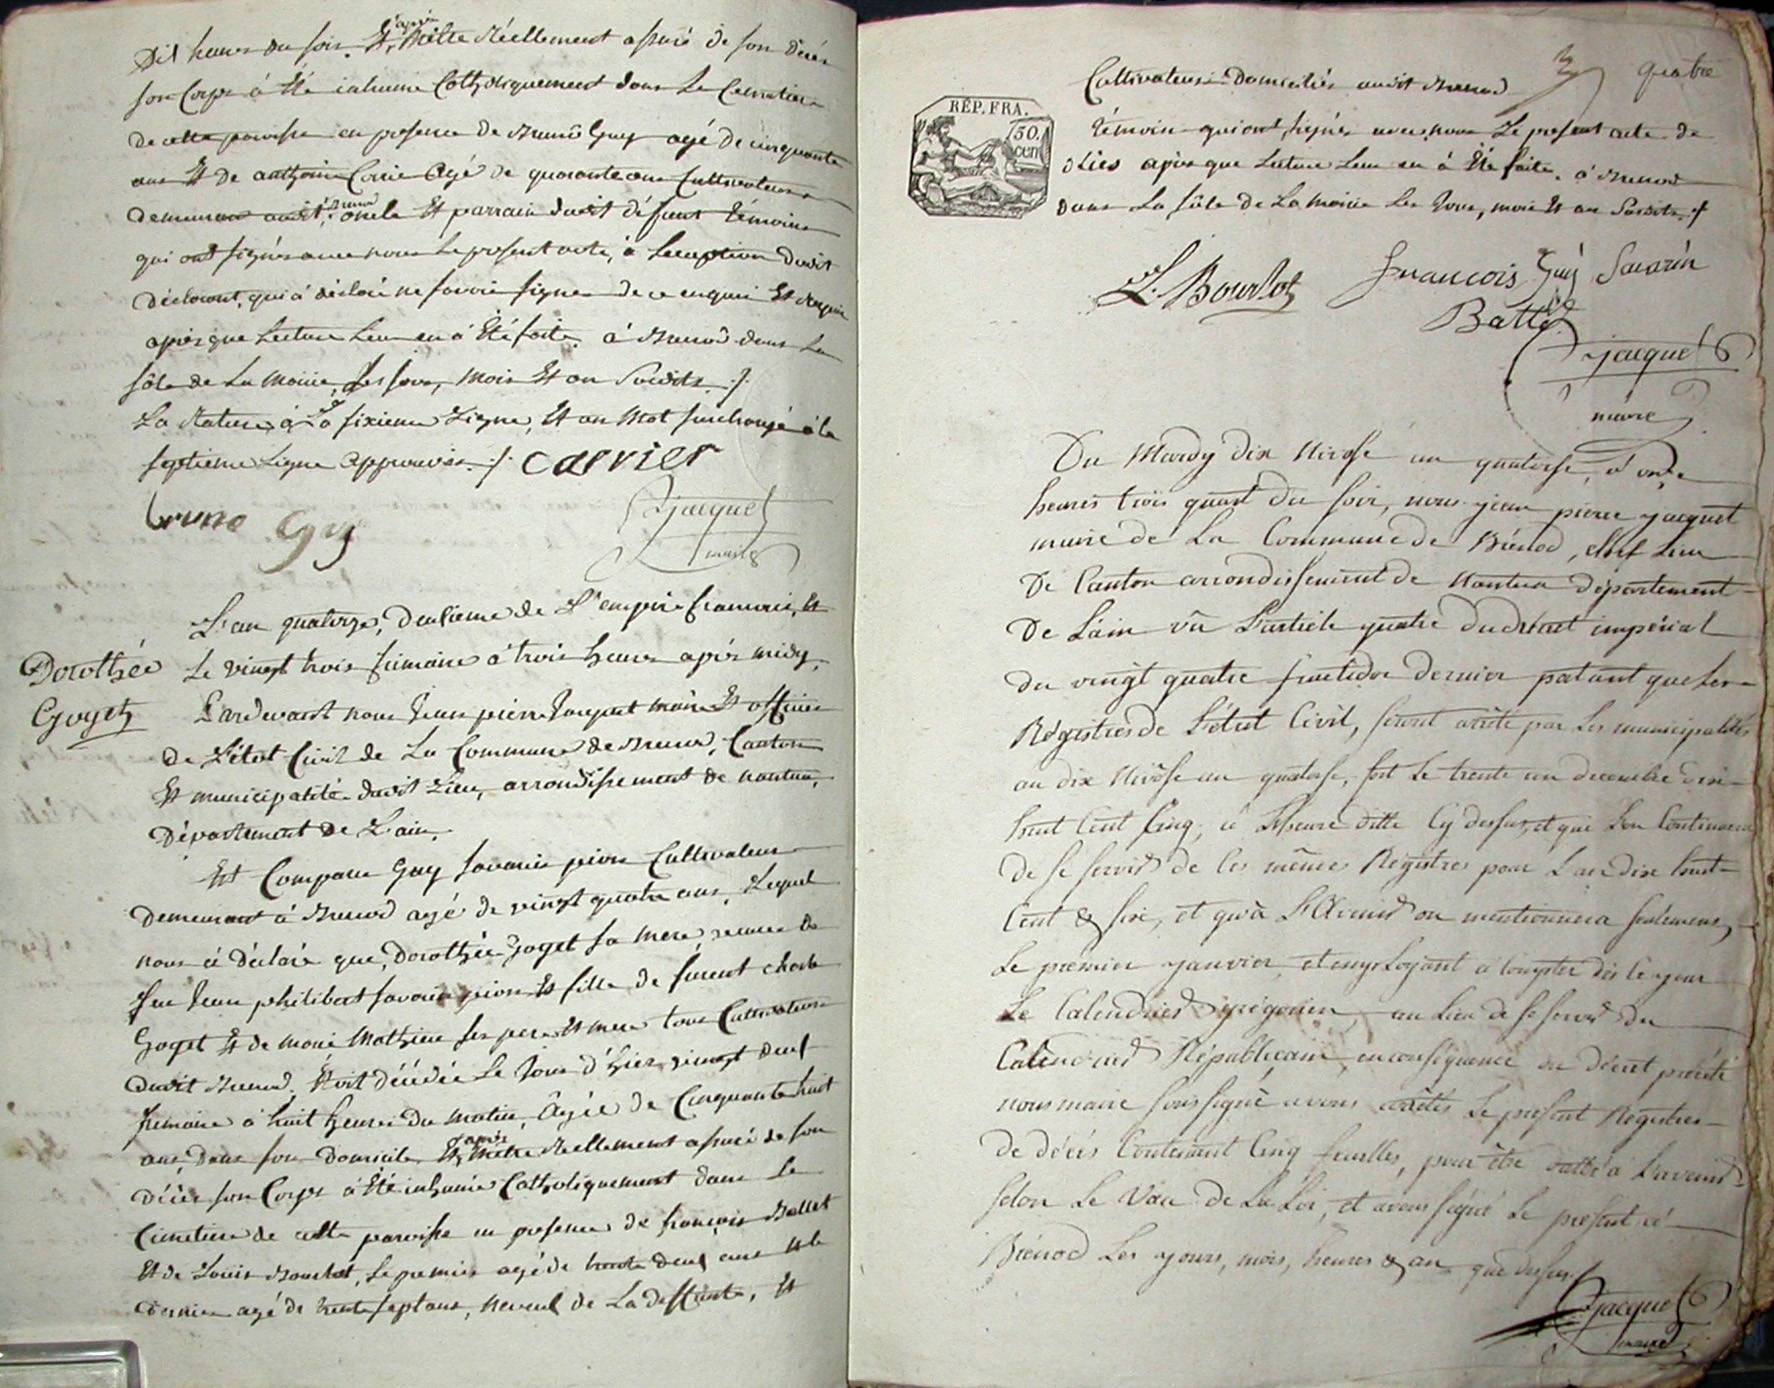 Dix heures du soir. Et, après m'être Réellement assuré de son décès
son Corps à été inhumé Catholiquement dans Le Cimetiere
de cette paroisse en presence de Bruno Guy agé de cinquante
ans Et de anthoine Carrier agé de quarante ans Cultivateurs
demeurans audit Brenod, oncle Et parrain dudit défunt témoins
qui ont signés avec nous Le present acte, à Lexception dudit
déclarant, qui à déclaré ne savoir signer de ce enquis Et requis
après que Lecture Leur en à Eté faite. à Brenod dans La
sâle de La Mairie, Les Jour, Mois Et an Susdits ./.
La Rature, à La sixieme Ligne, Et un Mot surchargé à la
septieme Ligne approuvés ./. carrier
bruno Guy
Jacquet
maire
Dorothée
Goyet
L'an quatorze, deuxieme de L'empire francais, Et
Le vingt trois frimaire à trois heures après midy,
Pardevant nous Jean pierre Jacquet maire Et officier
de L'état Civil de La Commune de Brenod, Canton
Et municipalité dudit Lieu, arrondissement de nantua,
Département de L'ain.
Est Comparu Guy Savarin pion Cultivateur
demeurant à Brenod agé de vingt quatre ans, Lequel
nous à déclaré que, Dorothée Goyet sa mere, veuve de
feu Jean philibert Savarin pion Et fille de furent charle
Goyet Et de marie Mathieu ses pere Et mere tous Cultivateurs
dudit Brenod, Etoit décédée Le Jour d'hier vingt deux
frimaire à huit heures du matin, âgée de Cinquante huit
ans, dans son domicile, Et, après m'être Réellement assuré de son
décès son Corps à Eté inhumé Catholiquement dans Le
Cimetiere de cette paroisse en presence de françois Ballet
Et de Louis Bourlot, Le premier agé de trente deux ans Et le
dernier agé de trente sept ans, neveux de La deffunte, Et
3 quatre
RÉP. FRA.
50.
cen
Cultivateurs Domiciliés audit Brenod
témoins qui ont signés avec nous Le present acte de
décès après que Lecture Leur en à Eté faite. à Brenod
dans La sâle de La mairie Les Jour, mois Et an Susdits ./.
L. Bourlot francois Guy Savarin
Ballet
jacquet
maire
Du Mardy dix Nivose an quatorse, à onze
heures trois quart du soir, nous jean pierre jacquet
maire de La Commune de Brénod, chef Lieu
De Canton arrondissement de Nantua département
De L'ain vû L'article quatre du décret impérial
du vingt quatre fructidor dernier portant que Les
Régistres de L'état Civil, seront arrêté par Les municipalités
au dix Nivôse an quatorse, soit Le trente un decembre dix
huit Cent Cinq, à L'heure ditte Cy dessus, et que L'on Continuera
de se servir de Ces même Régistres pour L'an dix huit
Cent & six, et qu'à L'avenir on mentionnera seulement
Le premier janvier, et employant à Compter dès Ce jour
Le Calendrier grégorien, au Lieu de se servir du
Calendrier Républicain, en conséquence du décret précité
nous maire soussigné avons arrêtés Le present Régistres
de décès Contenant Cinq feuilles, pour être datté à L'avenir
selon Le Vœu de La Loi, et avons signé Le présent à
Brénod Les jours, mois, heures & an que dessus
jacquet
maire